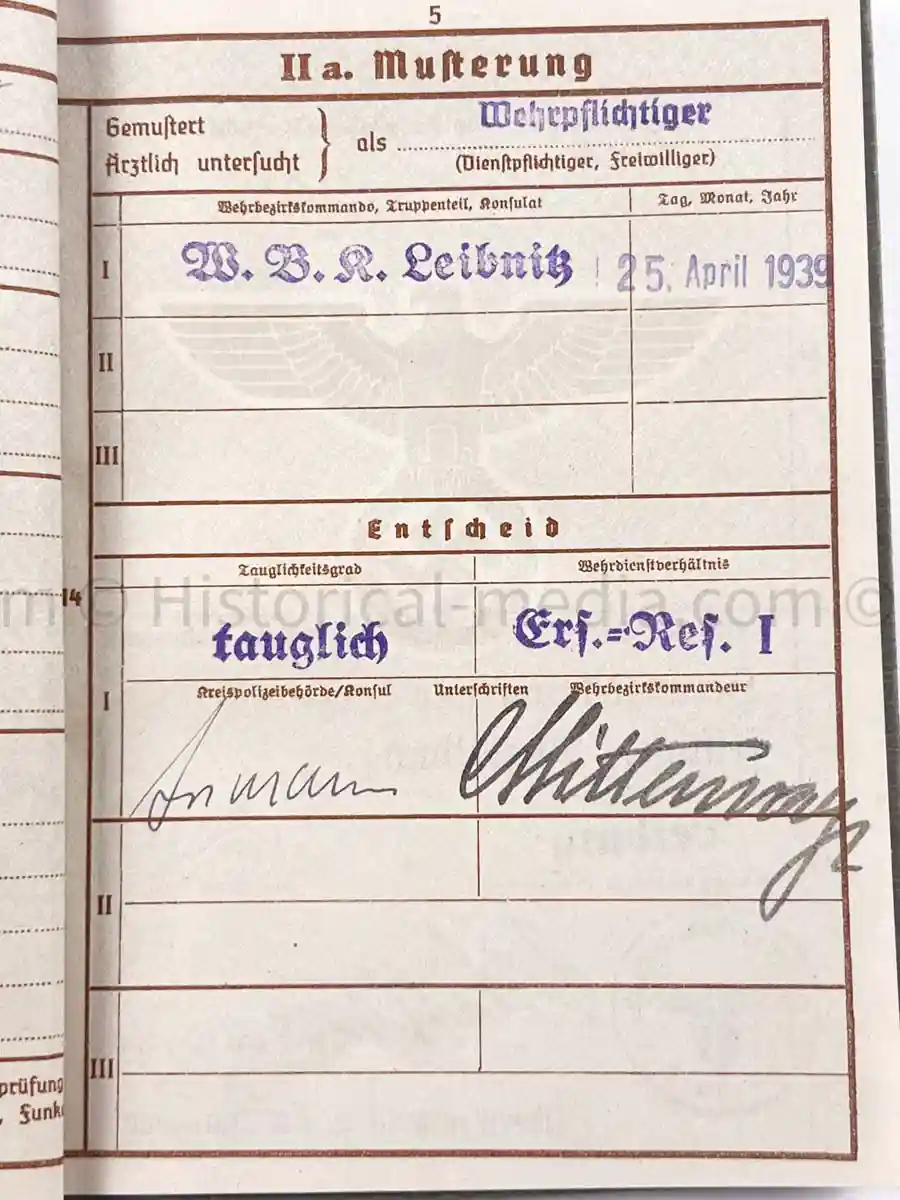 5
II a. Musterung
Gemustert
Ärztlich untersucht } als Wehrpflichtiger
(Dienstpflichtiger, Freiwilliger)
Wehrbezirkskommando, Truppenteil, Konsulat Tag, Monat, Jahr
I W. B. K. Leibnitz 25. April 1939
II
III
Entscheid
Tauglichkeitsgrad Wehrdienstverhältnis
14 m © Historical-media.com ©
tauglich Ers.=Res. I
I Kreispolizeibehörde/Konsul Unterschriften Wehrbezirkskommandeur
II
III
prüfung
, Funk